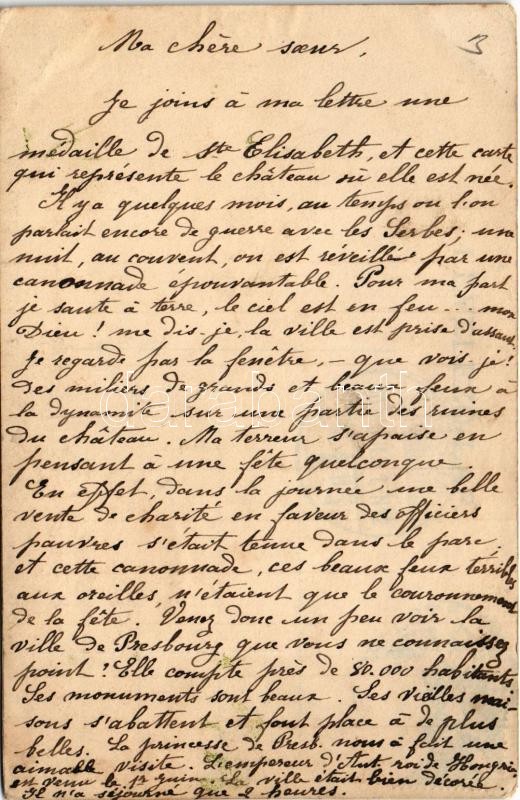 3
Ma chère sœur,
Je joins à ma lettre une
médaille de Ste Elisabeth, et cette carte
qui représente le château où elle est née.
Il y a quelques mois, au temps ou l'on
parlait encore de guerre avec les Serbes; une
nuit, au couvent, on est réveillé par une
canonnade épouvantable. Pour ma part
je saute à terre, le ciel est en feu... mon
Dieu! me dis-je, la ville est prise d'assaut
Je regarde par la fenêtre, - que vois-je!
des miliers de grands et beaux feux à
la dynamite sur une partie des ruines
du château. Ma terreur s'apaise en
pensant à une fête quelconque.
En effet, dans la journée une belle
vente de charité en faveur des officiers
pauvres s'était tenue dans le parc,
et cette canonnade, ces beaux feux terribles
aux oreilles, n'étaient que le couronnement
de la fête. Venez donc un peu voir la
ville de Presbourg que vous ne connaissez
point! Elle compte près de 80.000 habitants
Ses monuments sont beaux. Ses vieilles mai-
sons s'abattent et font place à de plus
belles. La princesse de Presb. nous a fait une
aimable visite. L'empereur d'Aut. roi de Hongrie
est venu le 17 juin. La ville était bien décorée.
Il n'a séjourné que 2 heures.
darabanth